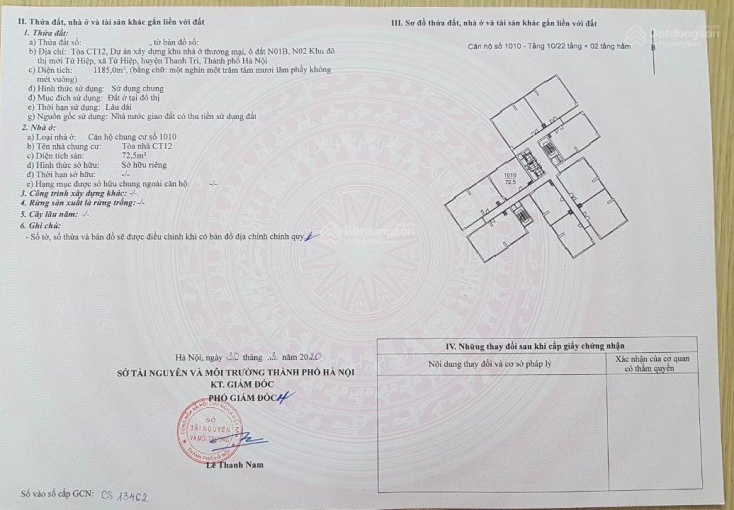 II. Thửa đất, nhà ở và tài sản khác gắn liền với đất
1. Thửa đất:
a) Thửa đất số: , tờ bản đồ số:
b) Địa chỉ: Tòa CT12, Dự án xây dựng khu nhà ở thương mại, ô đất N01B, N02 Khu đô
thị mới Tứ Hiệp, xã Tứ Hiệp, huyện Thanh Trì, Thành phố Hà Nội
c) Diện tích: 1185,0m², (bằng chữ: một nghìn một trăm tám mươi lăm phẩy không
mét vuông)
d) Hình thức sử dụng: Sử dụng chung
đ) Mục đích sử dụng: Đất ở tại đô thị
e) Thời hạn sử dụng: Lâu dài
g) Nguồn gốc sử dụng: Nhà nước giao đất có thu tiền sử dụng đất
2. Nhà ở:
a) Loại nhà ở: Căn hộ chung cư số 1010
b) Tên nhà chung cư: Tòa nhà CT12
c) Diện tích sàn: 72,5m²
d) Hình thức sở hữu: Sở hữu riêng
đ) Thời hạn sở hữu: -/-
e) Hạng mục được sở hữu chung ngoài căn hộ: -/-
3. Công trình xây dựng khác: -/-
4. Rừng sản xuất là rừng trồng: -/-
5. Cây lâu năm: -/-
6. Ghi chú:
- Số tờ, số thửa và bản đồ sẽ được điều chỉnh khi có bản đồ địa chính chính quy
Hà Nội, ngày 30 tháng năm 2020
SỞ TÀI NGUYÊN VÀ MÔI TRƯỜNG THÀNH PHỐ HÀ NỘI
KT. GIÁM ĐỐC
PHÓ GIÁM ĐỐC
SỞ
TÀI NGUYÊN
VÀ MÔI TRƯỜNG
THÀNH PHỐ HÀ NỘI
Lê Thanh Nam
Số vào sổ cấp GCN: CS 13462
III. Sơ đồ thửa đất, nhà ở và tài sản khác gắn liền với đất
Batdongsan
Căn hộ số 1010 - Tầng 10/22 tầng + 02 tầng hầm
B
1010
72.5
Batdongsan
IV. Những thay đổi sau khi cấp giấy chứng nhận
Nội dung thay đổi và cơ sở pháp lý
Xác nhận của cơ quan
có thẩm quyền